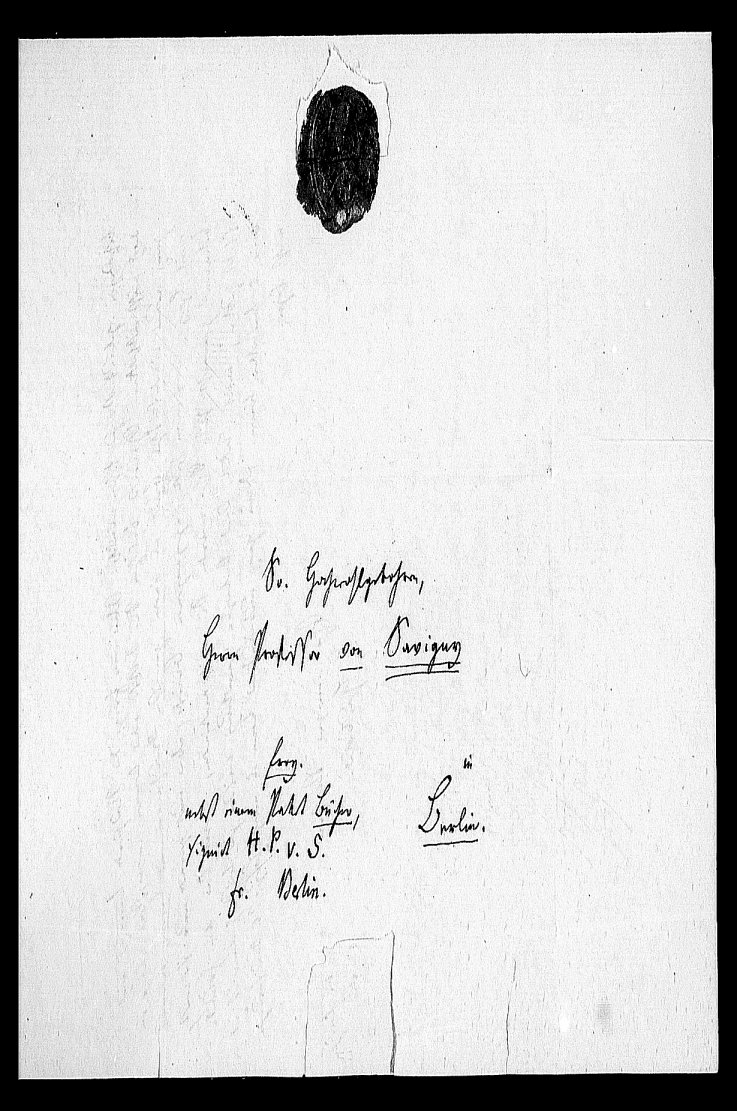 Sr. Hochwohlgebohren,
Herrn Professor von Savigny
in
Berlin.
nebst einem Paket Bücher,
signirt H. P. v. S.
fr. Berlin.